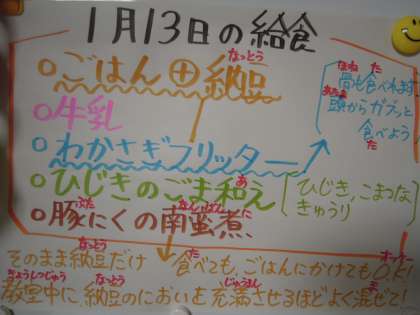 1月13日の給食
なっとう
○ごはん⊕納豆
○牛乳
○わかさぎフリッター
ほね た
骨も食べれます
あたま
頭からガブッと
食べよう
た
あ
○ひじきのごま和え
ひじき、こまつな
きゅうり
ぶた に
○豚にくの南蛮煮
なっとう た オッケー
そのまま納豆だけ食べても、ごはんにかけてもO.K!
きょうしつじゅう なっとう じゅうまん ま
教室中に、納豆のにおいを充満させるほどよく混ぜて!